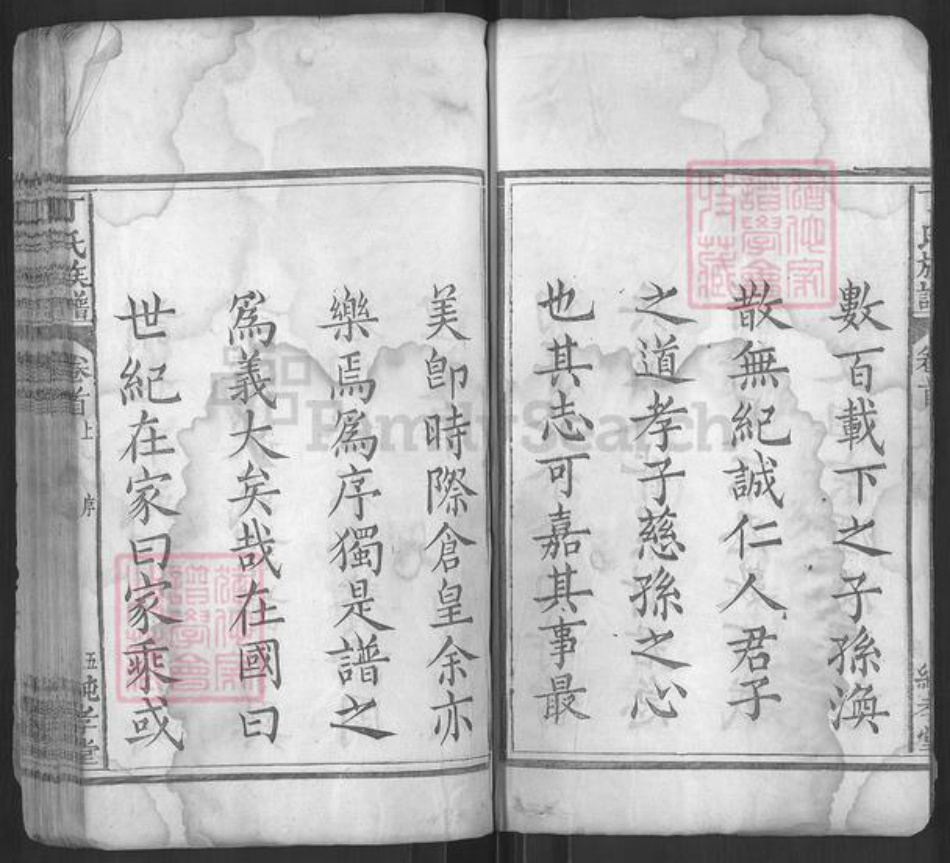 數百載下之子孫渙
散無紀誠仁人君子
之道孝子慈孫之心
也其志可嘉其事最
美即時際倉皇余亦
樂焉爲序獨是譜之
爲義大矣哉在國曰
世紀在家曰家乘或
丁氏族譜 卷首上 序 五 純孝堂
氏族譜 卷首
譜學會
收藏
FamilySearch